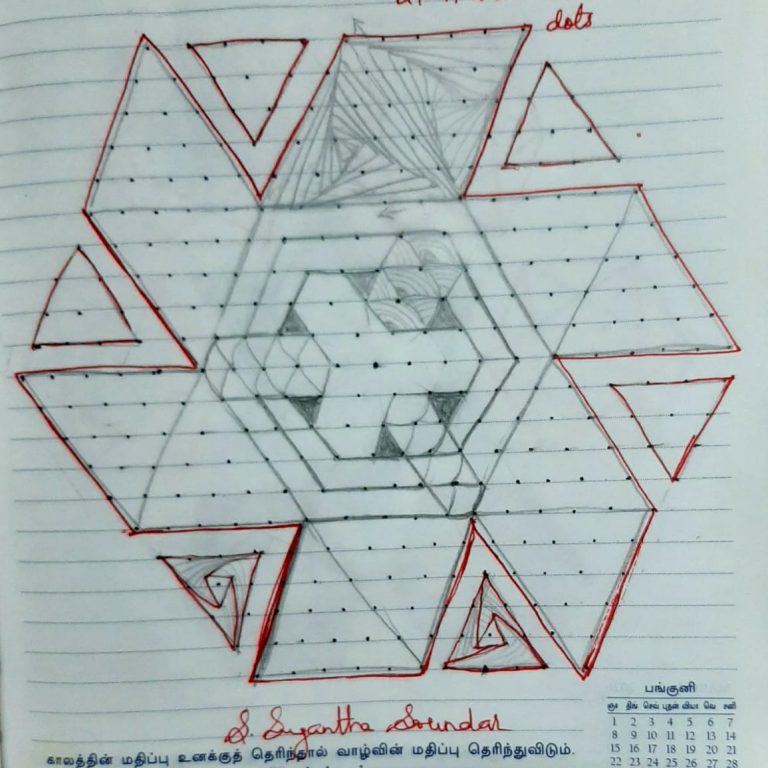 dots
S.
பங்குனி
ஞா திங் செவ் புதன் வியா வெ சனி
1 2 3 4 5 6 7
8 9 10 11 12 13 14
15 16 17 18 19 20 21
22 23 24 25 26 27 28
காலத்தின் மதிப்பு உனக்குத் தெரிந்தால் வாழ்வின் மதிப்பு தெரிந்துவிடும்.